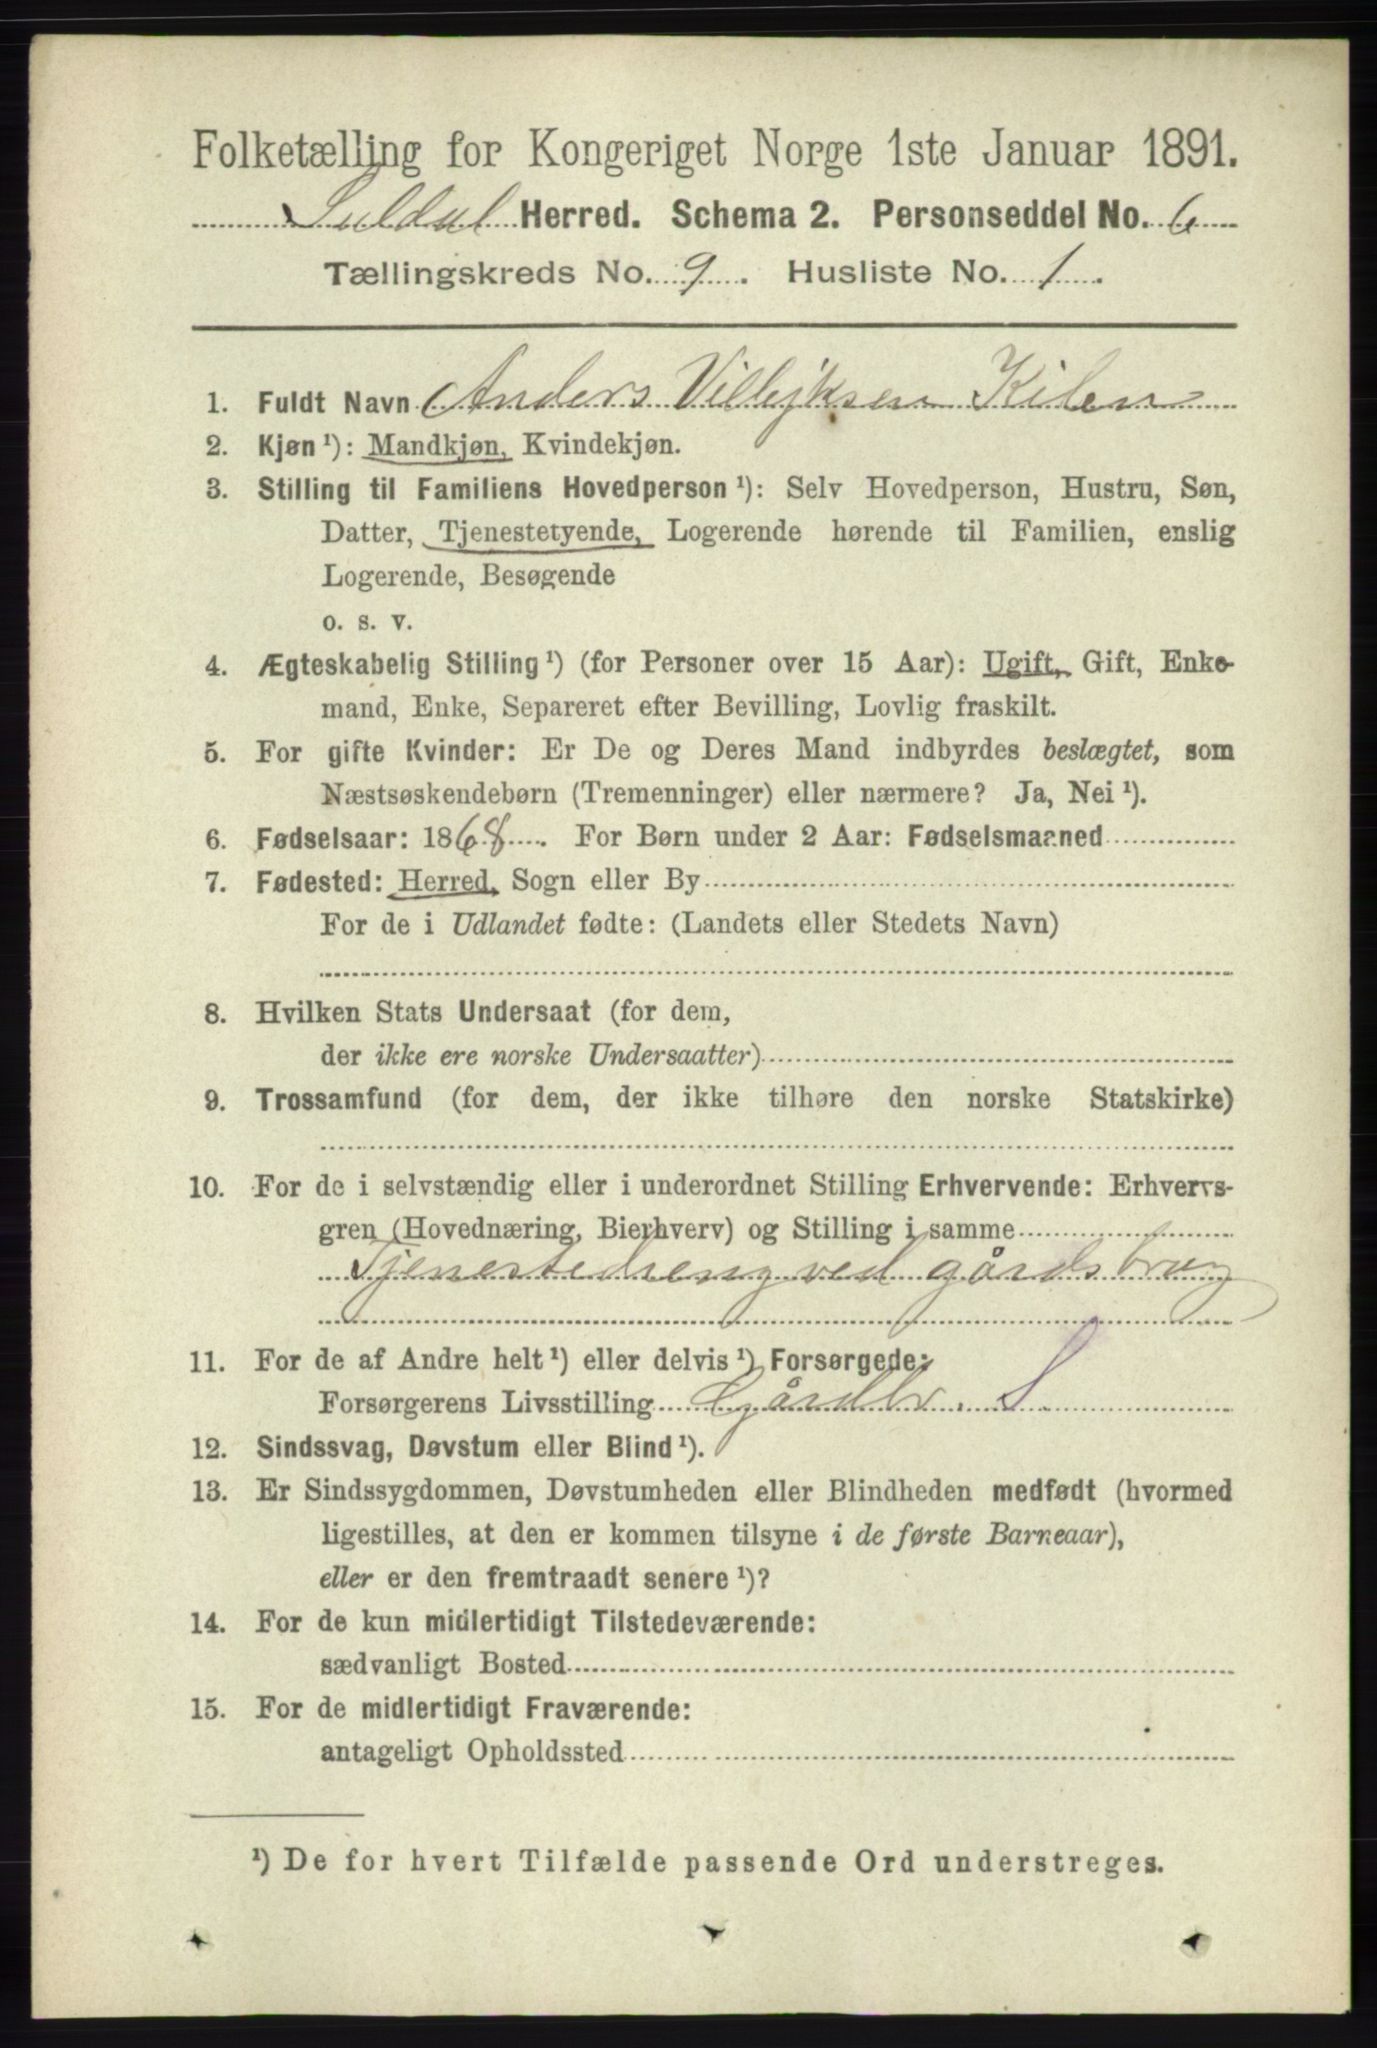 Folketælling for Kongeriget Norge 1ste Januar 1891.
Suldal Herred. Schema 2. Personseddel No. 6
Tællingskreds No. 9. Husliste No. 1.
1. Fuldt Navn Anders Villejksen Kilen
2. Kjøn ¹): Mandkjøn, Kvindekjøn.
3. Stilling til Familiens Hovedperson ¹): Selv Hovedperson, Hustru, Søn,
Datter, Tjenestetyende, Logerende hørende til Familien, enslig
Logerende, Besøgende
o. s. v.
4. Ægteskabelig Stilling ¹) (for Personer over 15 Aar): Ugift, Gift, Enke-
mand, Enke, Separeret efter Bevilling, Lovlig fraskilt.
5. For gifte Kvinder: Er De og Deres Mand indbyrdes beslægtet, som
Næstsøskendebørn (Tremenninger) eller nærmere? Ja, Nei ¹).
6. Fødselsaar: 1868. For Børn under 2 Aar: Fødselsmaaned
7. Fødested: Herred, Sogn eller By
For de i Udlandet fødte: (Landets eller Stedets Navn)
8. Hvilken Stats Undersaat (for dem,
der ikke ere norske Undersaatter)
9. Trossamfund (for dem, der ikke tilhøre den norske Statskirke)
10. For de i selvstændig eller i underordnet Stilling Erhvervende: Erhvervs-
gren (Hovednæring, Bierhverv) og Stilling i samme
Tjenestedreng ved gårdsbrug
11. For de af Andre helt ¹) eller delvis ¹) Forsørgede:
Forsørgerens Livsstilling Gårdbr. S
12. Sindssvag, Døvstum eller Blind ¹).
13. Er Sindssygdommen, Døvstumheden eller Blindheden medfødt (hvormed
ligestilles, at den er kommen tilsyne i de første Barneaar),
eller er den fremtraadt senere ¹)?
14. For de kun midlertidigt Tilstedeværende:
sædvanligt Bosted
15. For de midlertidigt Fraværende:
antageligt Opholdssted
¹) De for hvert Tilfælde passende Ord understreges.